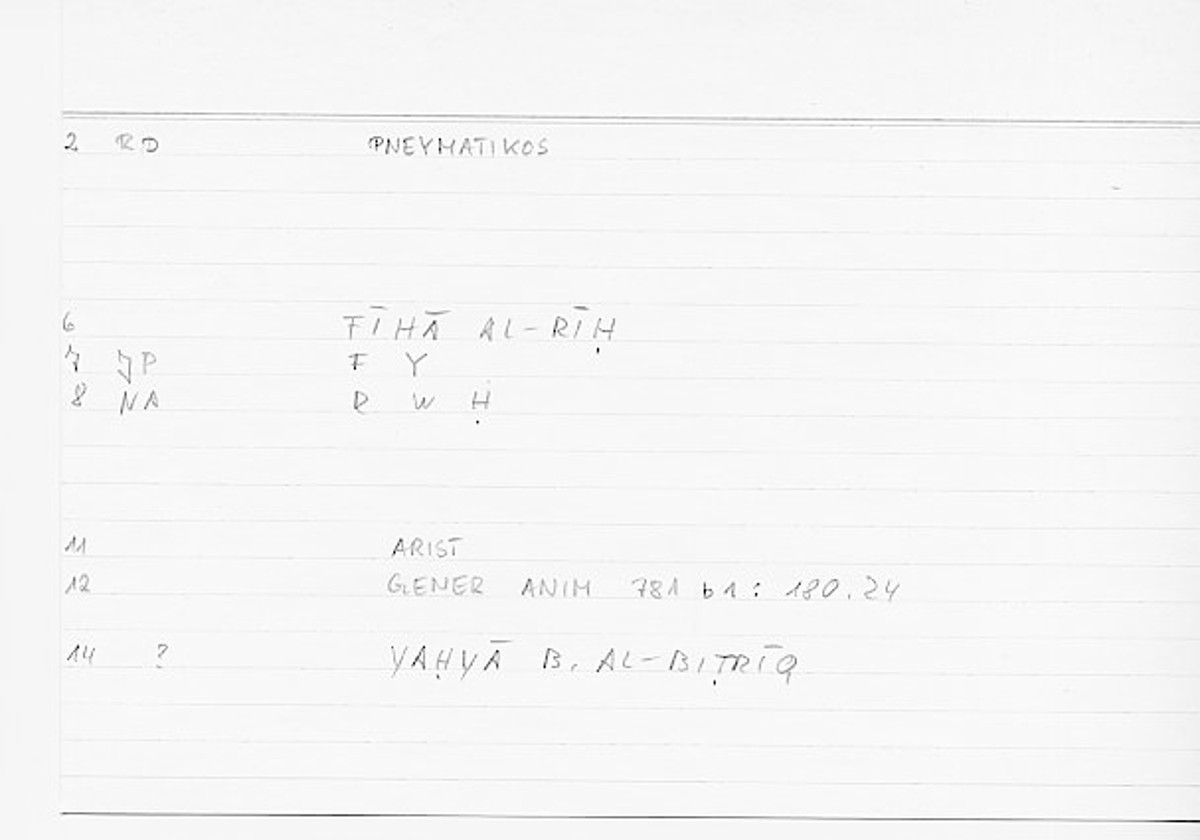 2 RD PNEYMATIKOS
6 FĪHĀ AL-RĪḤ
7 JP F Y
8 NA R W Ḥ
11 ARIST
12 GENER ANIM 781 b1: 180.24
14 ? YAḤYĀ B. AL-BIṬRĪQ